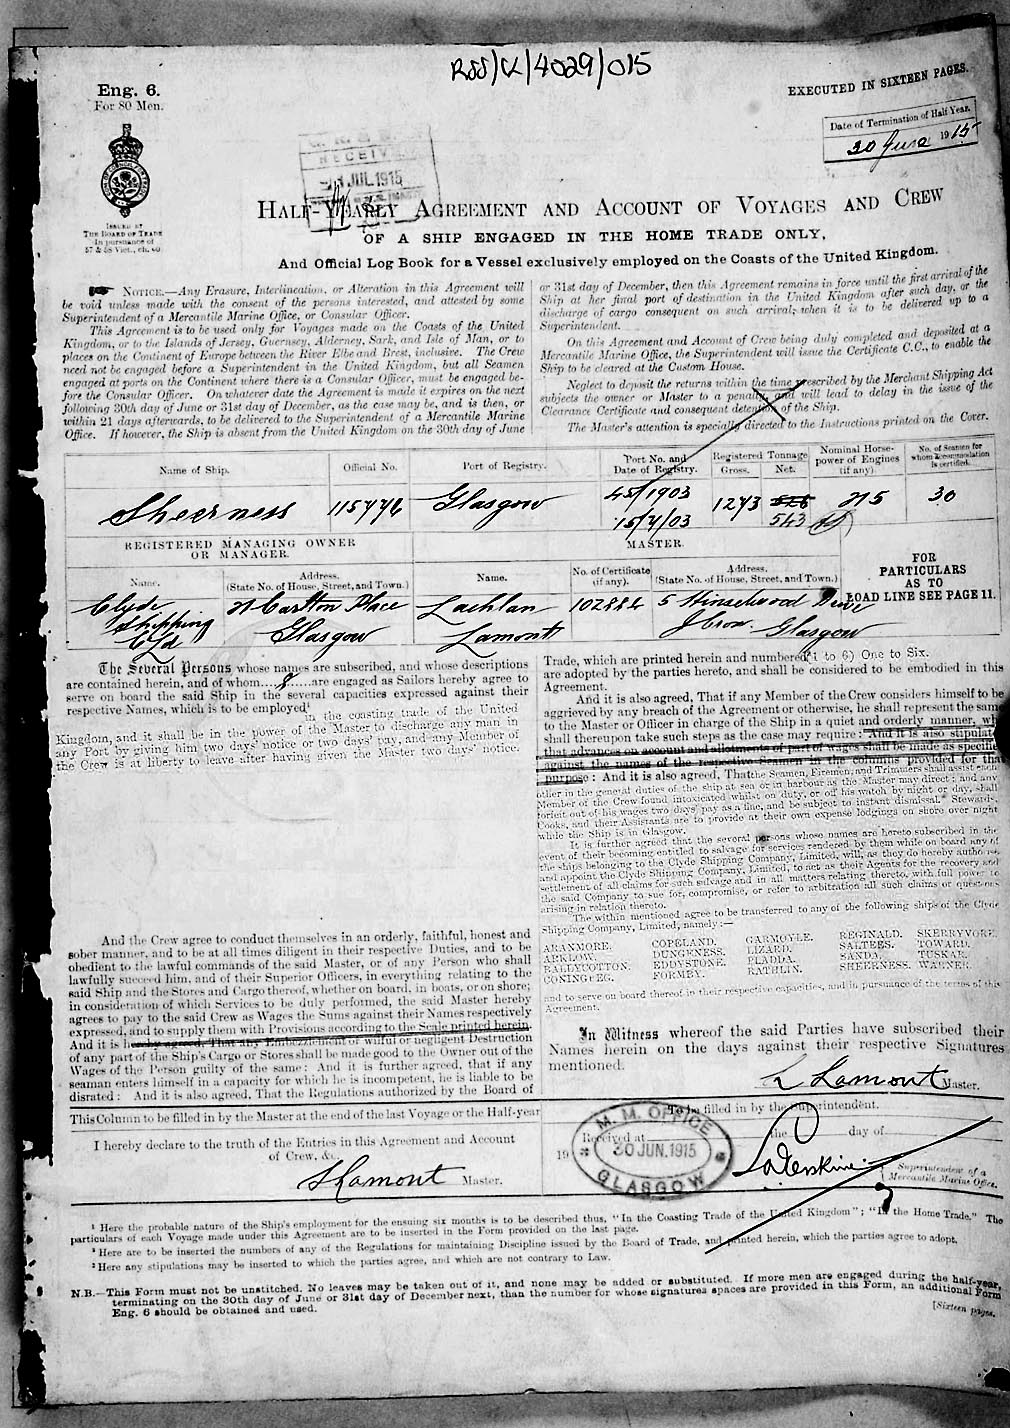 RSS/CL/4029/015
Eng. 6.
For 80 Men.
EXECUTED IN SIXTEEN PAGES.
Date of Termination of Half Year.
30 June 1915
ISSUED BY
THE BOARD OF TRADE
In pursuance of
57 & 58 Vict., ch. 60
RECEIVED
JUL. 1915
HALF-YEARLY AGREEMENT AND ACCOUNT OF VOYAGES AND CREW
OF A SHIP ENGAGED IN THE HOME TRADE ONLY,
And Official Log Book for a Vessel exclusively employed on the Coasts of the United Kingdom.
NOTICE.—Any Erasure, Interlineation, or Alteration in this Agreement will
be void unless made with the consent of the persons interested, and attested by some
Superintendent of a Mercantile Marine Office, or Consular Officer.
This Agreement is to be used only for Voyages made on the Coasts of the United
Kingdom, or to the Islands of Jersey, Guernsey, Alderney, Sark, and Isle of Man, or to
places on the Continent of Europe between the River Elbe and Brest, inclusive. The Crew
need not be engaged before a Superintendent in the United Kingdom, but all Seamen
engaged at ports on the Continent where there is a Consular Officer, must be engaged be-
fore the Consular Officer. On whatever date the Agreement is made it expires on the next
following 30th day of June or 31st day of December, as the case may be, and is then, or
within 21 days afterwards, to be delivered to the Superintendent of a Mercantile Marine
Office. If however, the Ship is absent from the United Kingdom on the 30th day of June
or 31st day of December, then this Agreement remains in force until the first arrival of the
Ship at her final port of destination in the United Kingdom after such day, or the
discharge of cargo consequent on such arrival; when it is to be delivered up to a
Superintendent.
On this Agreement and Account of Crew being duly completed and deposited at a
Mercantile Marine Office, the Superintendent will issue the Certificate C.C., to enable the
Ship to be cleared at the Custom House.
Neglect to deposit the returns within the time prescribed by the Merchant Shipping Act
subjects the owner or Master to a penalty, and will lead to delay in the issue of the
Clearance Certificate and consequent detention of the Ship.
The Master's attention is specially directed to the Instructions printed on the Cover.
Name of Ship.
Official No.
Port of Registry.
Port No. and
Date of Registry.
Registered Tonnage
Gross. Net.
Nominal Horse-
power of Engines
(if any)
No. of Seamen for
whom accommodation
is certified.
Sheerness
115776
Glasgow
45/1903
15/7/03
1273
543
30
REGISTERED MANAGING OWNER
OR MANAGER.
MASTER.
FOR
PARTICULARS
AS TO
LOAD LINE SEE PAGE 11.
Name.
Address.
(State No. of House, Street, and Town.)
Name.
No. of Certificate
(if any).
Address.
(State No. of House, Street, and Town.)
Clyde
Shipping
C Ld
21 Carlton Place
Glasgow
Lachlan
Lamont
102884
5 Hinselwood Drive
Ibrox Glasgow
The Several Persons whose names are subscribed, and whose descriptions
are contained herein, and of whom....8......are engaged as Sailors hereby agree to
serve on board the said Ship in the several capacities expressed against their
respective Names, which is to be employed¹
in the coasting trade of the United
Kingdom, and it shall be in the power of the Master to discharge any man in
any Port by giving him two days' notice or two days' pay, and any Member of
the Crew is at liberty to leave after having given the Master two days' notice.
And the Crew agree to conduct themselves in an orderly, faithful, honest and
sober manner, and to be at all times diligent in their respective Duties, and to be
obedient to the lawful commands of the said Master, or of any Person who shall
lawfully succeed him, and of their Superior Officers, in everything relating to the
said Ship and the Stores and Cargo thereof, whether on board, in boats, or on shore;
in consideration of which Services to be duly performed, the said Master hereby
agrees to pay to the said Crew as Wages the Sums against their Names respectively
expressed, and to supply them with Provisions according to the Scale printed herein.
And it is hereby agreed, That any Embezzlement or wilful or negligent Destruction
of any part of the Ship's Cargo or Stores shall be made good to the Owner out of the
Wages of the Person guilty of the same: And it is further agreed, that if any
seaman enters himself in a capacity for which he is incompetent, he is liable to be
disrated: And it is also agreed, That the Regulations authorized by the Board of
Trade, which are printed herein and numbered (1 to 6) One to Six.
are adopted by the parties hereto, and shall be considered to be embodied in this
Agreement.
And it is also agreed, That if any Member of the Crew considers himself to be
aggrieved by any breach of the Agreement or otherwise, he shall represent the same
to the Master or Officer in charge of the Ship in a quiet and orderly manner, who
shall thereupon take such steps as the case may require: And it is also stipulated
that advances on account and allotments of part of wages shall be made as specified
against the names of the respective Seamen in the columns provided for that
purpose: And it is also agreed, That the Seamen, Firemen, and Trimmers shall assist each
other in the general duties of the ship at sea or in harbour as the Master may direct; and any
Member of the Crew found intoxicated whilst on duty, or off his watch by night or day, shall
forfeit out of his wages two days' pay as a fine, and be subject to instant dismissal. Stewards,
Cooks, and their Assistants are to provide at their own expense lodgings on shore over night
while the Ship is in Glasgow.
It is further agreed that the several persons whose names are hereto subscribed in the
event of their becoming entitled to salvage for services rendered by them while on board any of
the ships belonging to the Clyde Shipping Company, Limited, will, as they do hereby authorise
and appoint the Clyde Shipping Company, Limited, to act as their Agents for the recovery and
settlement of all claims for such salvage and in all matters relating thereto, with full power to
the said Company to sue for, compromise, or refer to arbitration all such claims or questions
arising in relation thereto.
The within mentioned agree to be transferred to any of the following ships of the Clyde
Shipping Company, Limited, namely:—
ARANMORE. COPELAND. GARMOYLE. REGINALD. SKERRYVORE.
ARKLOW. DUNGENESS. LIZARD. SALTEES. TOWARD.
BALLYCOTTON. EDDYSTONE. PLADDA. SANDA. TUSKAR.
CONINGBEG. FORMBY. RATHLIN. SHEERNESS. WARNER.
and to serve on board thereof in their respective capacities, and in pursuance of the terms of this
Agreement.
In Witness whereof the said Parties have subscribed their
Names herein on the days against their respective Signatures
mentioned.
L Lamont Master.
This Column to be filled in by the Master at the end of the last Voyage or the Half-year
I hereby declare to the truth of the Entries in this Agreement and Account
of Crew, &c.
L Lamont Master.
To be filled in by the Superintendent.
Received at the day of
19
M. M. OFFICE
30 JUN. 1915
GLASGOW
Superintendent of a
Mercantile Marine Office.
¹ Here the probable nature of the Ship's employment for the ensuing six months is to be described thus, "In the Coasting Trade of the United Kingdom"; "In the Home Trade." The
particulars of each Voyage made under this Agreement are to be inserted in the Form provided on the last page.
² Here are to be inserted the numbers of any of the Regulations for maintaining Discipline issued by the Board of Trade, and printed herein, which the parties agree to adopt.
³ Here any stipulations may be inserted to which the parties agree, and which are not contrary to Law.
N.B.—This Form must not be unstitched. No leaves may be taken out of it, and none may be added or substituted. If more men are engaged during the half-year,
terminating on the 30th day of June or 31st day of December next, than the number for whose signatures spaces are provided in this Form, an additional Form
Eng. 6 should be obtained and used.
[Sixteen pages.